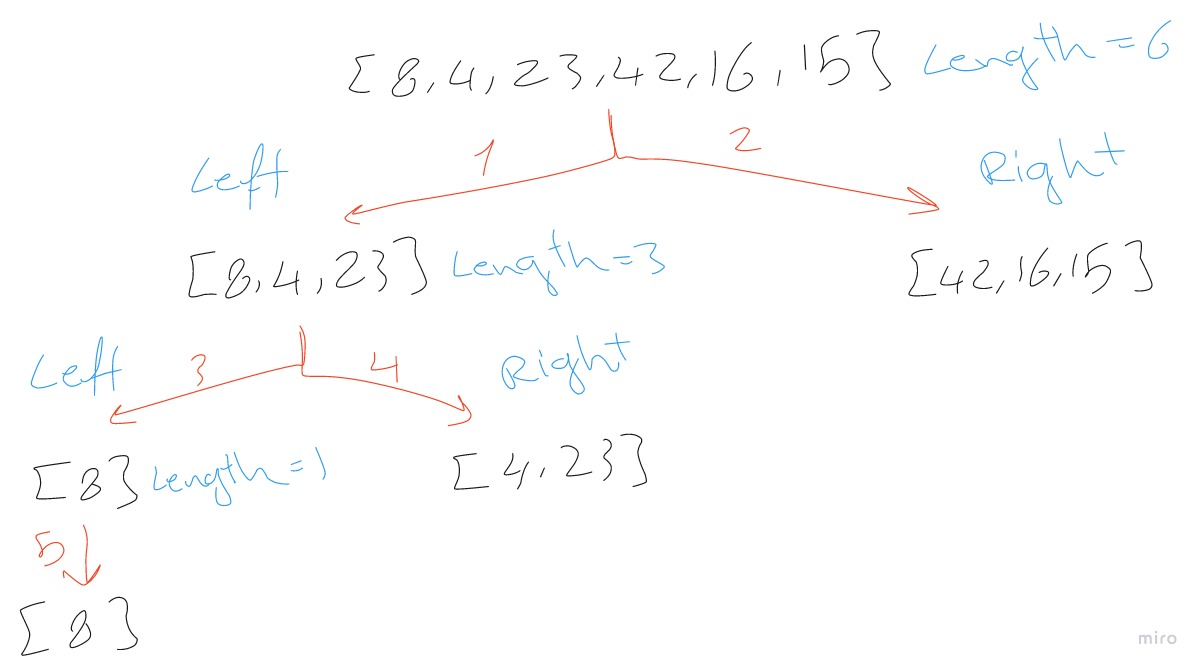 [8,4,23,42,16,15] Length=6
1 2
Left Right
[8,4,23] Length=3 [42,16,15]
Left 3 4 Right
[8] Length=1 [4,23]
5
[8]
miro